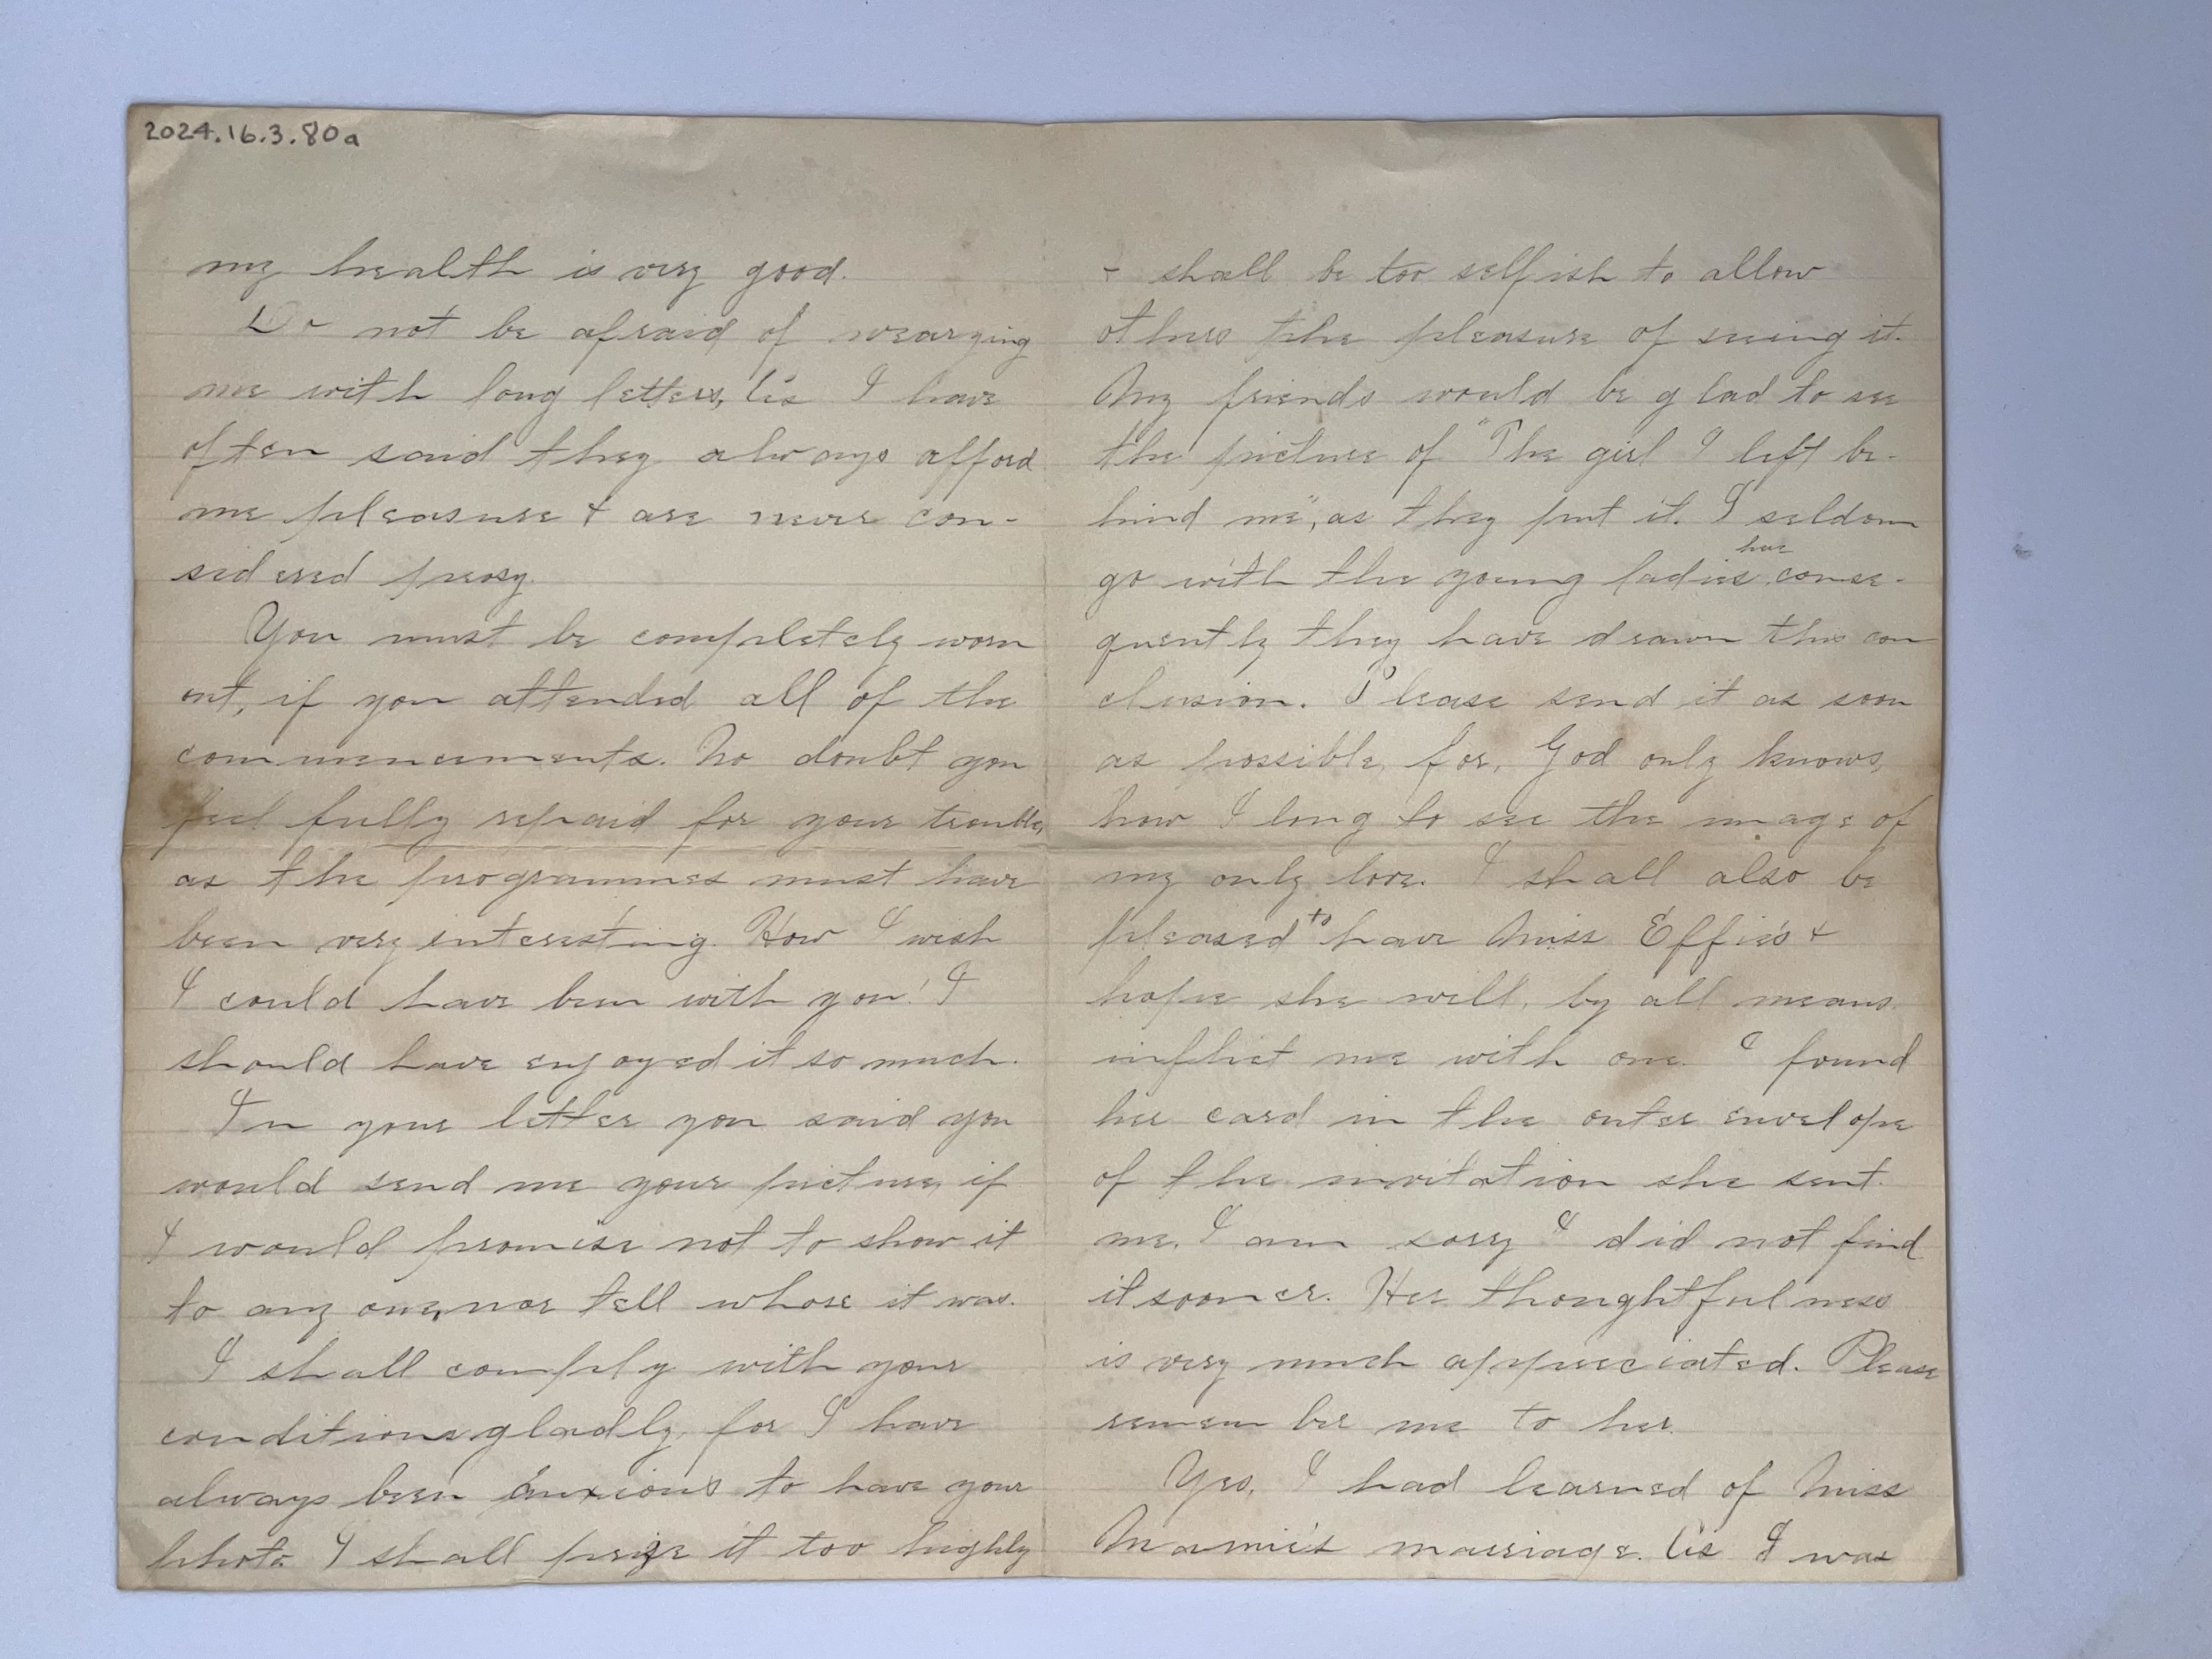 2024.16.3.80a
my health is very good.
Do not be afraid of wearying
me with long letters, as I have
often said they always afford
me pleasure & are never con-
sidered prosy.
You must be completely worn
out, if you attended all of the
commencements. No doubt you
feel fully repaid for your trouble,
as the programmes must have
been very interesting. How I wish
I could have been with you! I
should have enjoyed it so much.
In your letter you said you
would send me your picture, if
I would promise not to show it
to any one, nor tell whose it was.
I shall comply with your
conditions gladly, for I have
always been anxious to have your
photo. I shall prize it too highly
& shall be too selfish to allow
others the pleasure of seeing it.
My friends would be glad to see
the picture of "The girl I left be-
hind me", as they put it. I seldom
go with the young ladies here conse-
quently they have drawn this con
clusion. Please send it as soon
as possible, for, God only knows,
how I long to see the image of
my only love. I shall also be
pleased to have Miss Effie's &
hope she will, by all means,
inflict me with one. I found
her card in the outer envelope
of the invitation she sent
me. I am sorry I did not find
it sooner. Her thoughtfulness
is very much appreciated. Please
remember me to her.
Yes, I had learned of Miss
Mamie's marriage. As I was